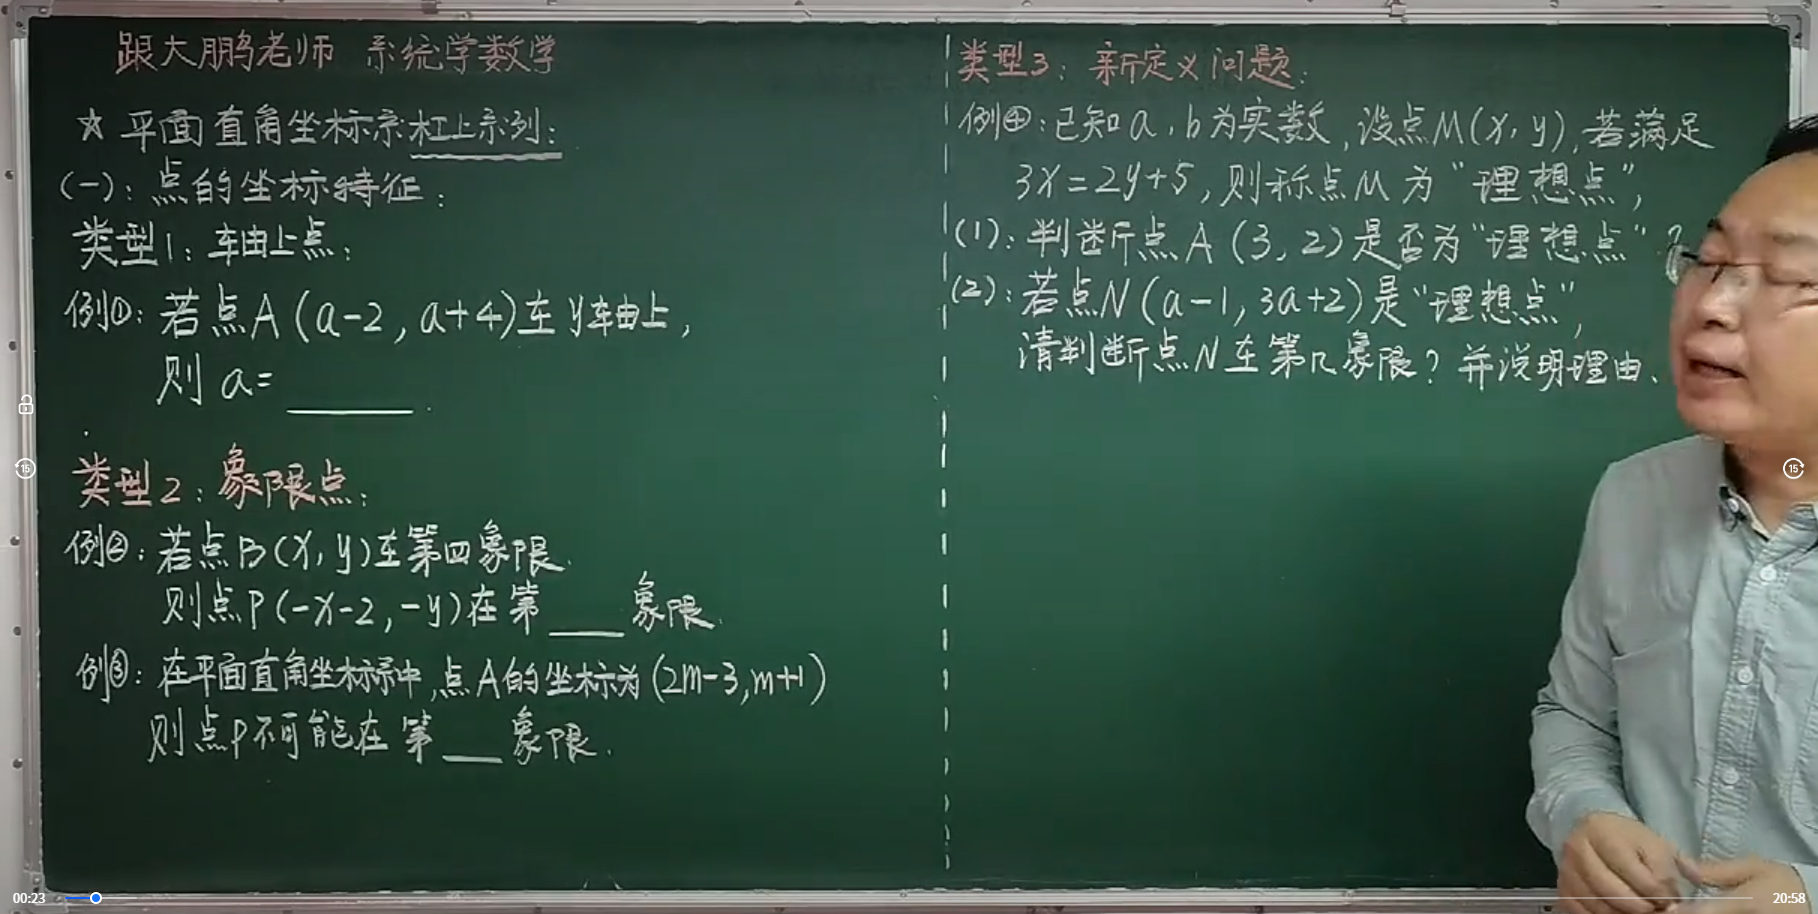 跟大鹏老师 系统学数学
☆ 平面直角坐标系杠上系列:
(一): 点的坐标特征:
类型1: 轴上点:
例①: 若点A(a-2, a+4)在y轴上,
则 a= ____.
类型2: 象限点:
例②: 若点B(x, y)在第四象限.
则点P(-x-2, -y)在第 ___ 象限.
例③: 在平面直角坐标系中,点A的坐标为(2m-3,m+1)
则点P不可能在第 ___ 象限.
类型3: 新定义问题:
例④: 已知a, b为实数, 设点M(x, y), 若满足
3x=2y+5, 则称点M为“理想点”,
(1): 判断点A(3, 2)是否为“理想点”?
(2): 若点N(a-1, 3a+2)是“理想点”,
请判断点N在第几象限? 并说明理由.
15
15
00:23
20:58